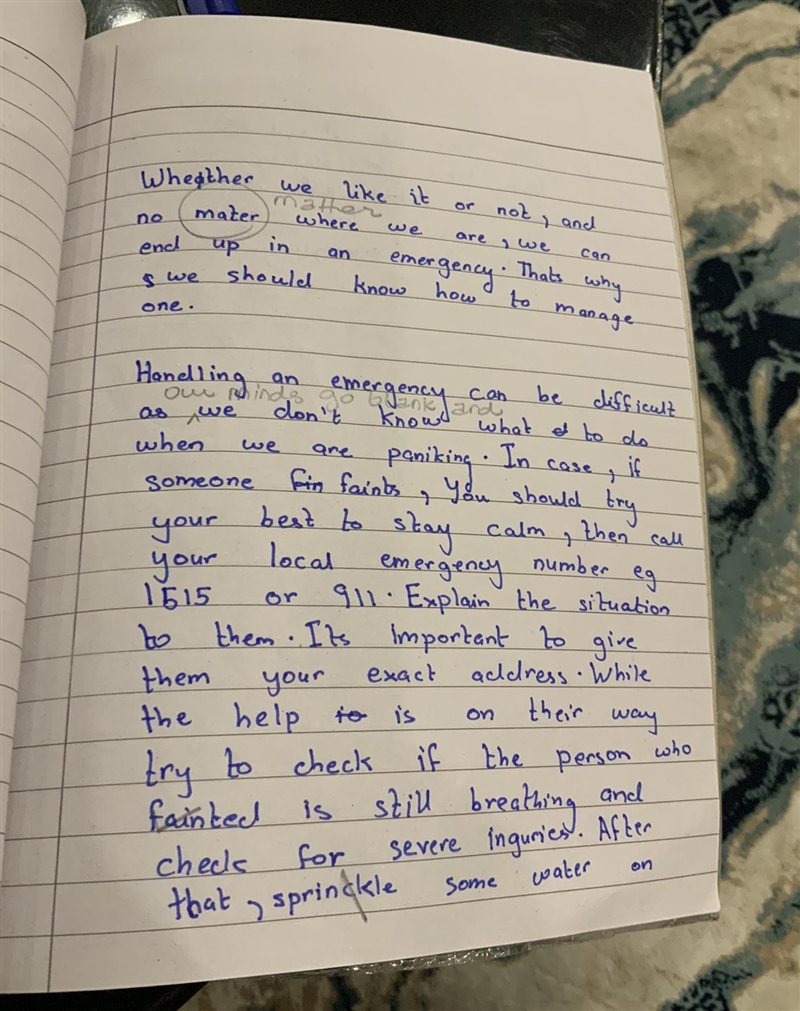 Whether we like it or not, and
matter
no mater where we are, we can
end up in an emergency. Thats why
s we should know how to manage
one.
Handling an emergency can be difficult
our minds go blank and
as we don't know what to do
when we are paniking. In case, if
someone fin faints, you should try
your best to stay calm, then call
your local emergency number eg
1515 or 911. Explain the situation
to them. Its important to give
them your exact address. While
the help to is on their way
try to check if the person who
fainted is still breathing and
check for severe inguries. After
that, sprinckle some water on